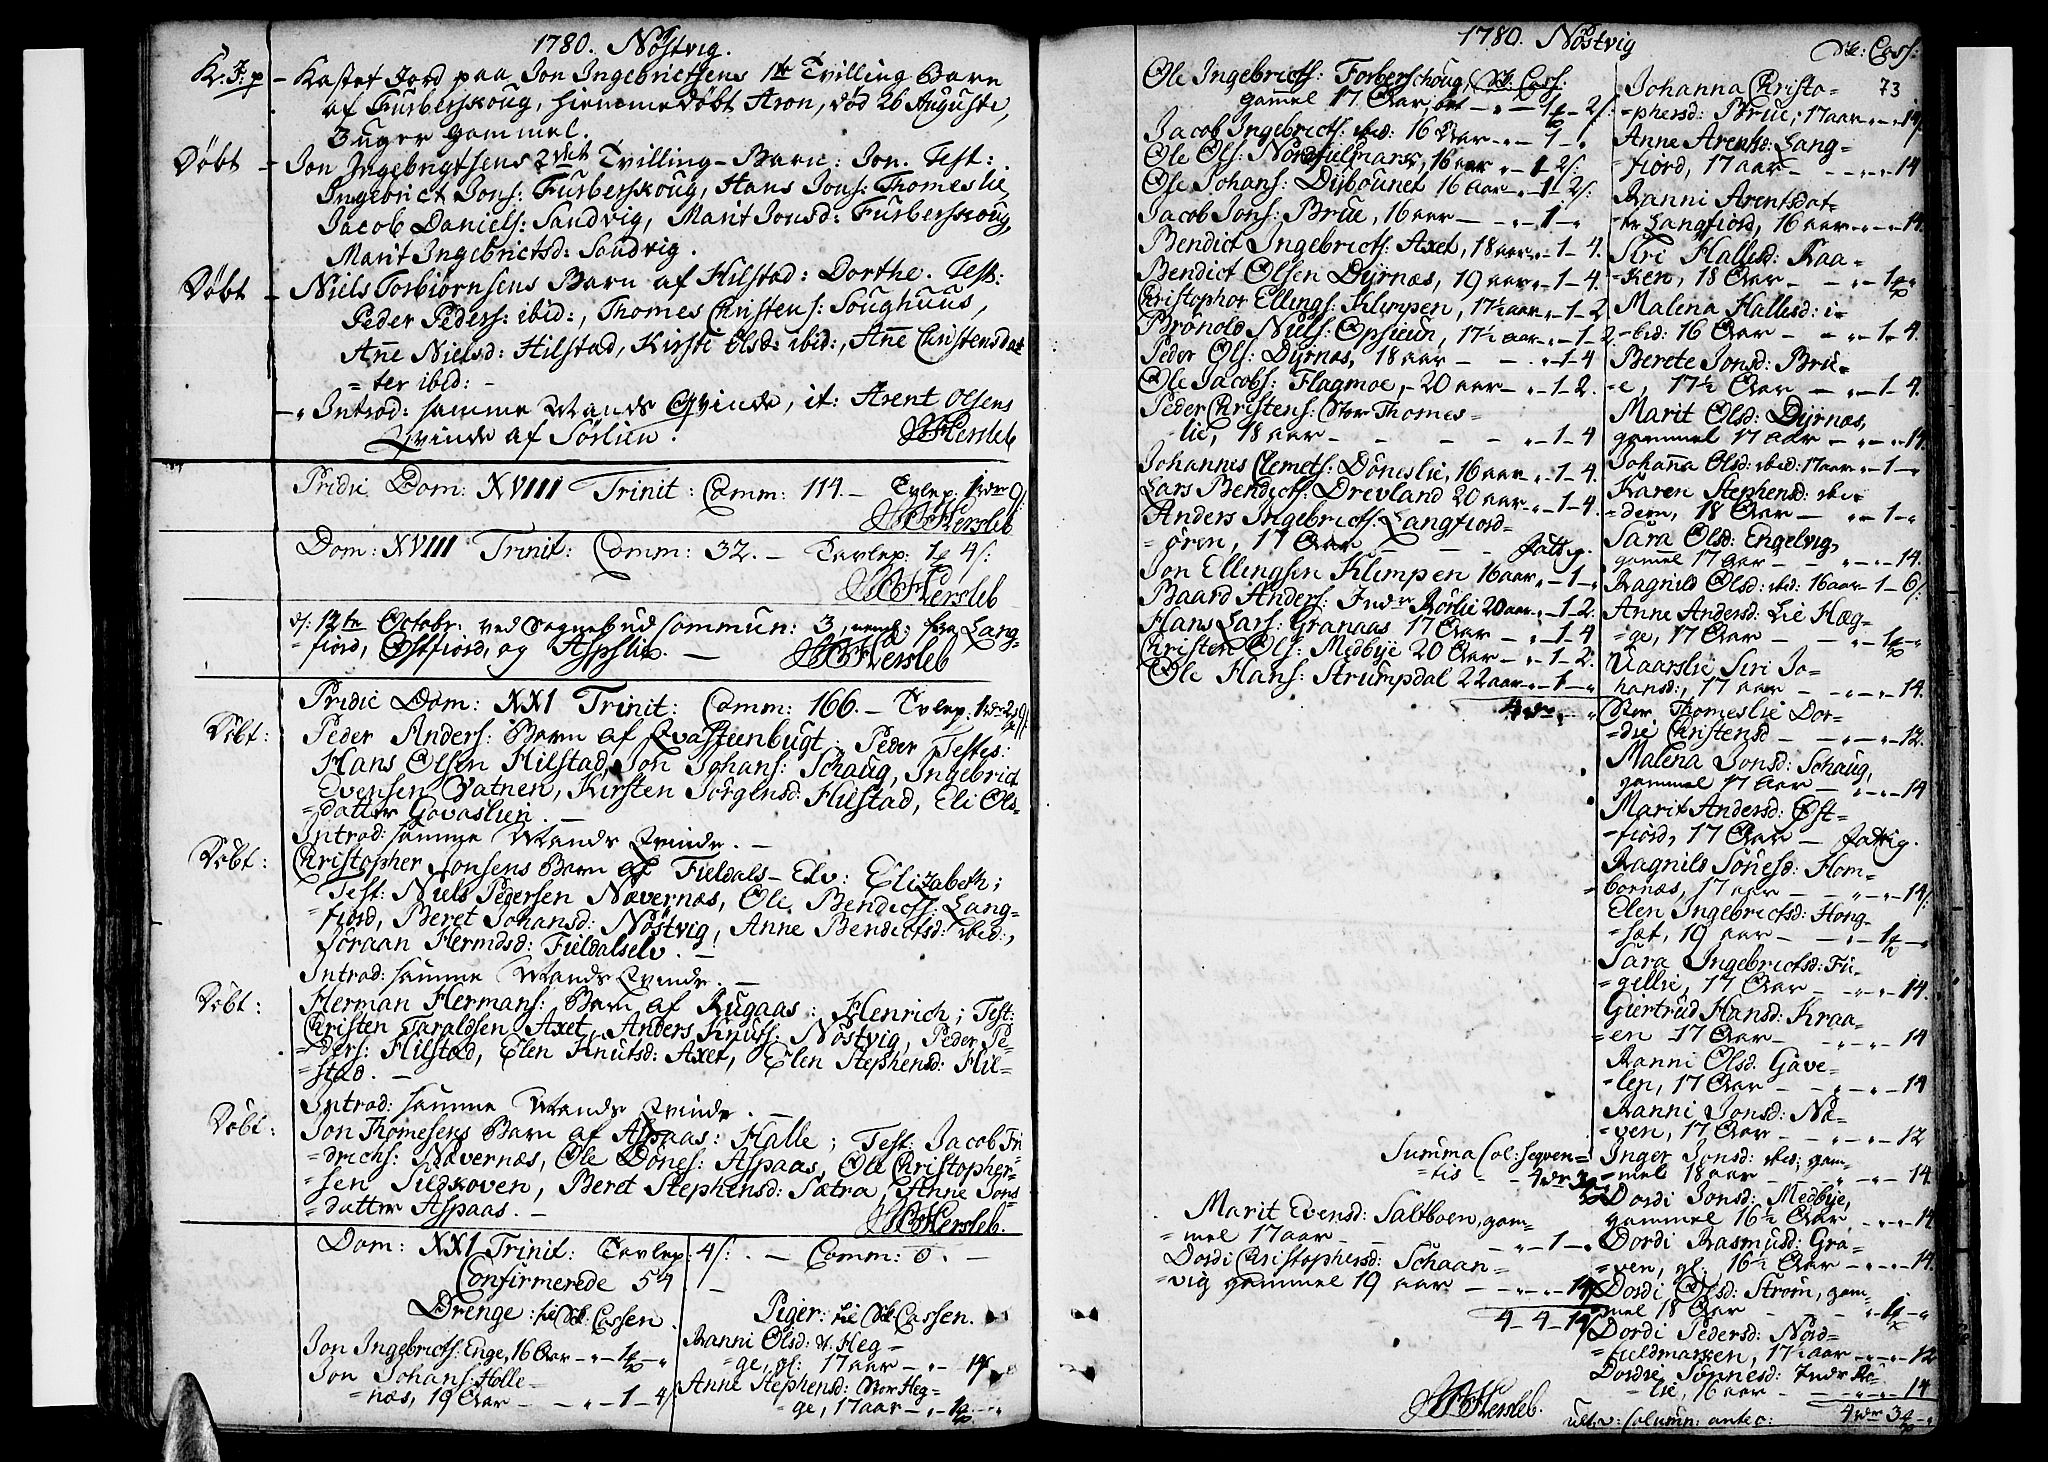 1780. Nøstvig.
K. J. p - Kastet Jord paa Jon Ingebrictsens 1te Tvilling Barn
af Furberskoug, hiemmedøbt Aron, død 26 Augusti,
3 uger gammel.
Døbt - Jon Ingebrigtsens 2det Tvilling-Barn: Jon. Test:
Ingebrict Jons: Furberskoug, Hans Jons: Thomeslie,
Jacob Daniels: Sandvig, Marit Jonsd: Furberskoug,
Marit Ingebrictsd: Sandvig.
Døbt - Niels Torbiørnsens Barn af Hilstad: Dorthe. Test:
Peder Peders: ibid:, Thomes Christens: Soughuus,
Anne Nielsd: Hilstad, Kirsti Olsd: ibid:, Anne Christensdat
=ter ibid: -
Introd: samme Mands Qvinde, it: Arent Olsens
Qvinde af Sørlien.
Hersleb
Pridie Dom: XVIII Trinit: Comm: 114. -
Hersleb
Dom: XVIII Trinit: Comm: 32. - Tavlep: 1 4 s:
Hersleb
d: 12te Octobr: ved Sognebud Commun: 3, neml: fra Lang=
fiord, Østfiord, og Aspslie. -
Hersleb
Pridie Dom: XXI Trinit: Comm: 166. -
Døbt: Peder Anders: Barn af Qvasteenbugt: Peder Testes:
Hans Olsen Hilstad, Jon Johans: Schaug, Ingebrict
Evensen Vatnen, Kirsten Jørgensd: Hilstad, Eli Ols=
=datter Govaslien. -
Introd: samme Mands Qvinde. -
Døbt: Christopher Jonsens Barn af Fieldals-Elv: Elizabeth;
Test: Niels Pedersen Nævernæs, Ole Bendicts: Lang=
=fiord, Beret Johansd: Nøstvig, Anne Bendictsd: ibid:,
Joraan Hermdsd: Fieldalselv. -
Introd: samme Mands Qvinde. -
Døbt: Herman Hermans: Barn af Rugaas: Henrich; Test:
Christen Taraldsen Axet, Anders Knuts: Nøstvig, Peder Pe=
=ders: Hilstad, Elen Knutsd: Axet, Elen Stephensd: Hil=
=stad. -
Introd: samme Mands Qvinde. -
Døbt: Jon Thomesens Barn af Aspaas: Halle; Test: Jacob Fri
=drichs: Nævernæs, Ole Dønes: Aspaas, Ole Christopher=
=sen Sildskoven, Beret Stephensd: Sætra, Anne Jons
=datter Aspaas. -
Hersleb.
Dom: XXI Trinit: Tavlep: 4 s: - Comm: 0. -
Confirmerede 54
Drenge: til Cassen.
Jon Ingebricts: Enge, 16 Aar - " - 1 - "
Jon Johans: Holle=
=næs, 19 Aar - " - 1 - 4
Piger: til Cassen.
Ranni Olsd: Heg=
=ge, gl: 17 aar - " - 14
Anne Stephensd: Stor Heg=
=ge, 17 aar - " - 1
1780. Nøstvig
Cass:
73
Ole Ingebricts: Forberschoug, Cass:
gammel 17 Aar 1 - 2 s.
Jacob Ingebricts: ibid: 16 Aar - 1 -
Ole Ols: Nordfieldmark, 16 aar - 1 - 2 s:
Ole Johans: Dybounet 16 aar - 1 - 2 s:
Jacob Jons: Brue, 16 aar - " - 1 - "
Bendict Ingebricts: Axet, 18 aar - 1 - 4.
Bendict Olsen Dyrnæs, 19 aar - 1 - 4.
Christopher Ellings: Klimpen, 17½ aar - 1 - 2
Brønold Niels: Opsieun, 17½ aar - 1 - 2
Peder Ols: Dyrnæs, 18 aar - 1 - 4
Ole Jacobs: Flagmoe, - 20 aar - 1 - 2.
Peder Christens: Stor Thomes=
lie, 18 aar - - - " - 1 - 4
Johannes Clemets: Døneslie, 16 aar - 1 - 4.
Lars Bendicts: Drevland 20 aar - 1 - 4.
Anders Ingebricts: Langfiord=
=øren, 17 Aar - - - fattig.
Jon Ellingsen Klimpen 16 aar - 1 - "
Baard Anders: Indr Rørlie 20 aar - 1 - 2.
Hans Lars: Granaas 17 Aar - 1 - 4
Christen Ols: Medbye 20 Aar - " - 1 - 2.
Ole Hans: Strumpdal 22 aar - 1 - "
Summa Col: seqven=
=tis
Marit Evensd: Saltboen, gam=
=mel 17 aar - - " - 1 - "
Dordi Christophersd: Schaan=
=vig gammel 19 aar - - " - 14
4 - 4 - 14
Hersleb.
Johanna Christo=
=phersd: Brue, 17 aar - 14
Anne Arentsd: Lang=
=fiord, 17 aar - - " - 14
Ranni Arentsdat=
ter Langfiord, 16 aar - 14
Siri Hallesd: Kaa=
=ken, 18 Aar - - " - 1 - "
Malena Hallesd: i=
=bid: 16 Aar - - " - 1 - 4.
Berete Jonsd: Bru=
=e, 17½ Aar - " - 1 - 4.
Marit Olsd: Dyrnæs,
gammel 17 aar - " - 14
Johanna Olsd: ibid: 17 aar - 1 - "
Karen Stephensd: ibi=
=dem, 18 Aar - " - 1 - "
Sara Olsd: Engelvig,
gammel 17 aar - - " - 14.
Ragnild Olsd: ibid: 16 aar - 1 - 6 s:
Anne Andersd: Lie Hæg=
=ge, 17 Aar - - " - 1 - "
Vaarslie Siri Jo=
hansd:, 17 aar - - " - 14.
Stor Thomeslie Dor=
=die Christensd - " - 12.
Malena Jonsd: Schaug,
gammel 17 aar - " - 14
Marit Andersd: Øst=
=fiord, 17 Aar - fattig.
Ragnild Jonesd: Hom=
=bornæs, 17 aar - - " - 14 s.
Elen Ingebrictsd: Hong=
=sæt, 19 aar - - " - 1 - "
Sara Ingebrictsd: Fu=
=gellie, 17 Aar - " - 14.
Giertrud Hansd: Kraa=
=en 17 Aar - - " - 14
Ranni Olsd: Gave=
=len, 17 Aar - - " - 14
Ranni Jonsd: Næ=
=ven, 17 Aar - - " - 12
Inger Jonsd: ibid; gam=
=mel 18 aar - - " - 14.
Dordi Jonsd: Medbye,
gammel 16½ Aar - " - 14
Dordi Rasmusd: Gra=
=ven, gl: 16½ Aar - " - 14.
Dordi Olsd: Strøm, gam=
=mel 18 Aar - - " - 1 - "
Dordi Pedersd: Nord=
=fieldmarken, 17½ aar - " - 12
Dordie Jonnesd: Indr Rø=
=lie, 16 aar - - " - 14
Column: antec: